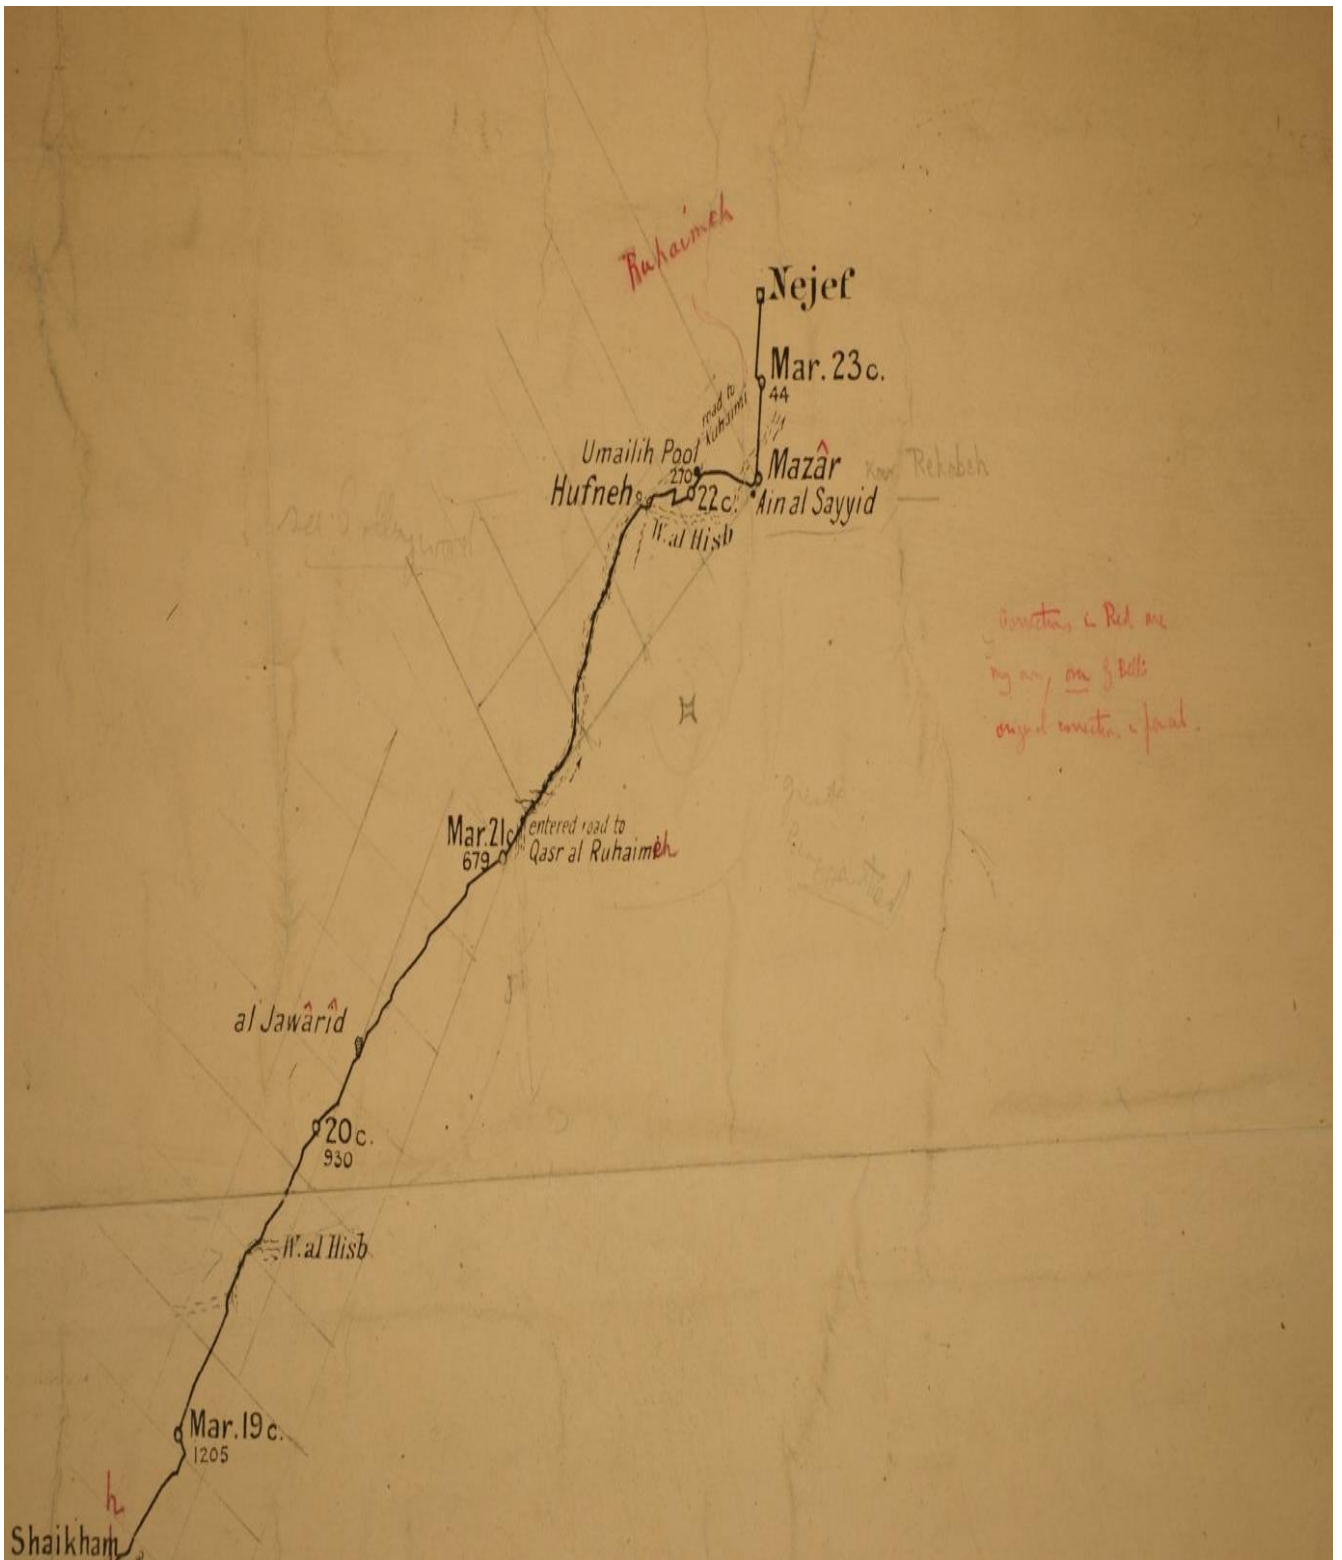 Ruhaimeh
Nejef
Mar. 23c.
44
road to
Ruhaimi
Umailih Pool
270
Mazâr
Rehabeh
Hufneh
22c.
Ain al Sayyid
W. al Hisb
Corrections in Red are
my own, over of Bell's
original corrections in pencil.
Mar. 21c
679
entered road to
Qasr al Ruhaimeh
al Jawârîd
20c.
930
W. al Hisb
Mar. 19c.
1205
h
Shaikham